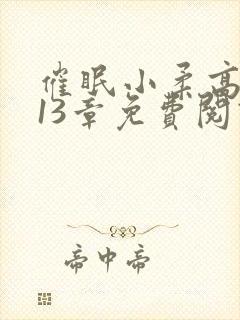 催眠小柔高
13章免費閱
帝中帝